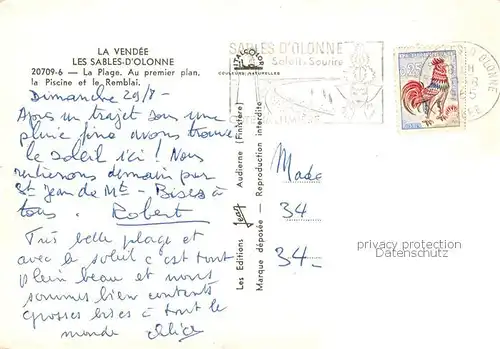 LA VENDÉE
LES SABLES-D'OLONNE
20709-6 — La Plage. Au premier plan,
la Piscine et le Remblai.
Dimanche 29/8 -
Après un trajet sous une
pluie fine nous trouvons
le soleil ici ! Nous
rentrerons demain par
St Jean de Mts - Bises à
tous. Robert
Très belle plage et
avec le soleil c'est tout
plein beau et nous
sommes bien contents
grosses bises à tout le
monde Alice
COULEURS NATURELLES
Les Editions Jean Audierne (Finistère)
Marque déposée — Reproduction interdite
SABLES D'OLONNE
Soleil - Sourire
Mada
34
34 -
privacy protection
Datenschutz